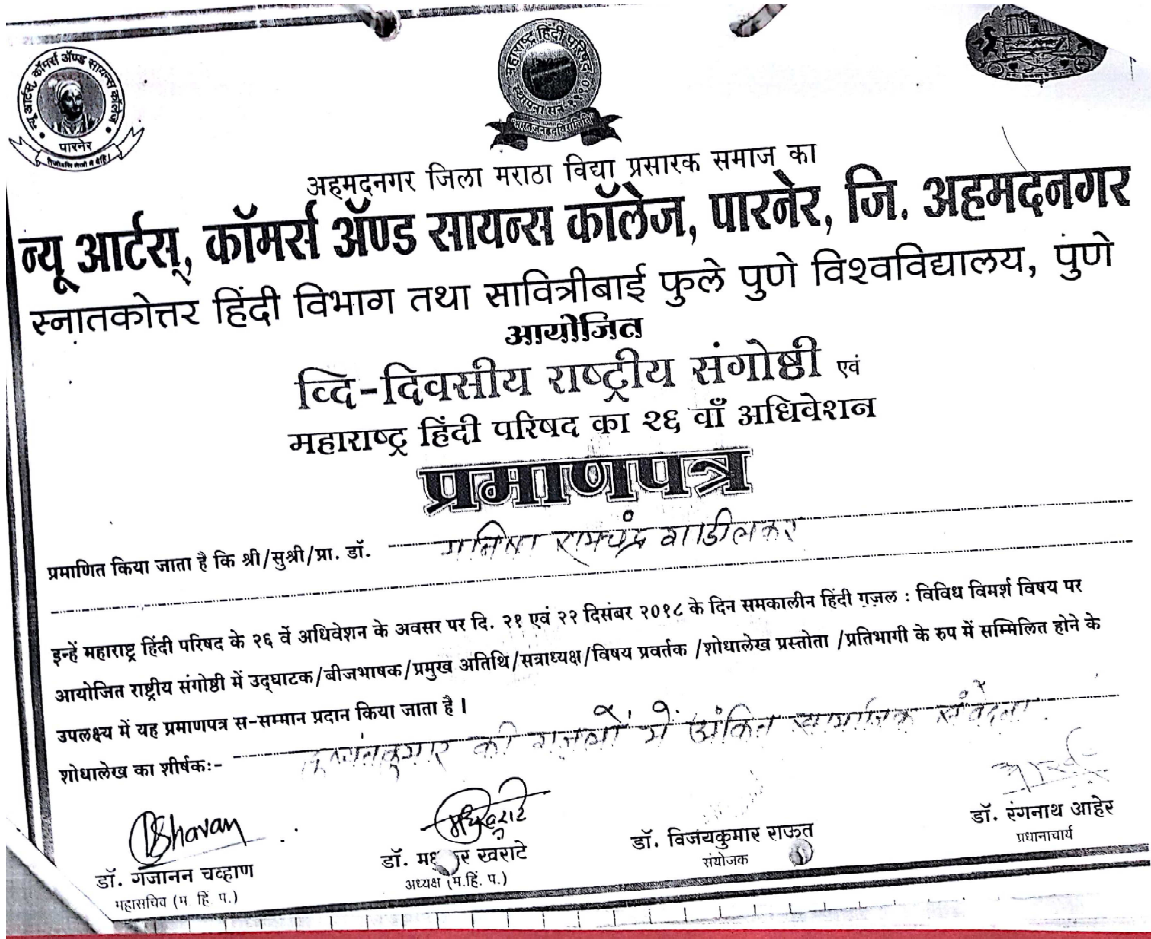 न्यू आर्टस्, कॉमर्स ॲण्ड सायन्स कॉलेज
पारनेर
महाराष्ट्र हिंदी परिषद
अहमदनगर जिला मराठा विद्या प्रसारक समाज का
न्यू आर्टस्, कॉमर्स ॲण्ड सायन्स कॉलेज, पारनेर, जि. अहमदनगर
स्नातकोत्तर हिंदी विभाग तथा सावित्रीबाई फुले पुणे विश्वविद्यालय, पुणे
आयोजित
व्दि-दिवसीय राष्ट्रीय संगोष्ठी एवं
महाराष्ट्र हिंदी परिषद का २६ वाँ अधिवेशन
प्रमाणपत्र
प्रमाणित किया जाता है कि श्री/सुश्री/प्रा. डॉ. रामचंद्र गाडीलकर
इन्हें महाराष्ट्र हिंदी परिषद के २६ वें अधिवेशन के अवसर पर दि. २१ एवं २२ दिसंबर २०१८ के दिन समकालीन हिंदी गज़ल : विविध विमर्श विषय पर
आयोजित राष्ट्रीय संगोष्ठी में उद्घाटक/बीजभाषक/प्रमुख अतिथि/सत्राध्यक्ष/विषय प्रवर्तक /शोधालेख प्रस्तोता /प्रतिभागी के रुप में सम्मिलित होने के
उपलक्ष्य में यह प्रमाणपत्र स-सम्मान प्रदान किया जाता है ।
शोधालेख का शीर्षक:- की गजलों में अंकित सामाजिक संवेदना
डॉ. गजानन चव्हाण
महासचिव (म. हिं. प.)
डॉ. मधुकर खराटे
अध्यक्ष (म.हिं. प.)
डॉ. विजयकुमार राऊत
संयोजक
डॉ. रंगनाथ आहेर
प्रधानाचार्य